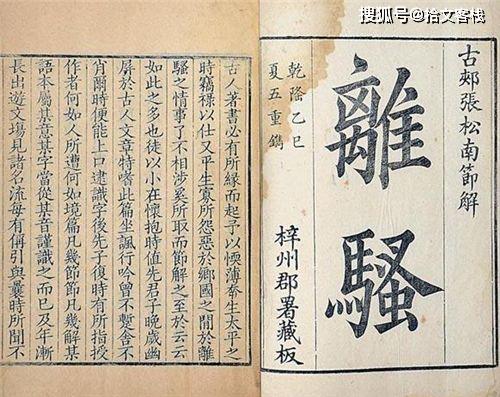 搜狐号@拾文客栈
古郟張松南節解
離騷
乾隆乙巳
夏五重鐫
梓州郡署藏板
古人著書必有所緣而起予以薄生太平之
時竊祿以仕又平生寡所怨惡於鄉國之間於離
騷之情事了不相涉奚所取而節解之至於云云
如此之多也徒以小在懷抱時值先君子晚歲幽
屏於古人文章特嗜此篇坐諷行吟曾不蹔舍不
肖爾時便能上口逮識字後先子復時有所指授
作者何如人所遭何如境篇凡幾節節凡幾解某
語本屬某意某字當從某音謹識之而已及年漸
長出遊文場見諸名流每有偁引與曩時所聞不